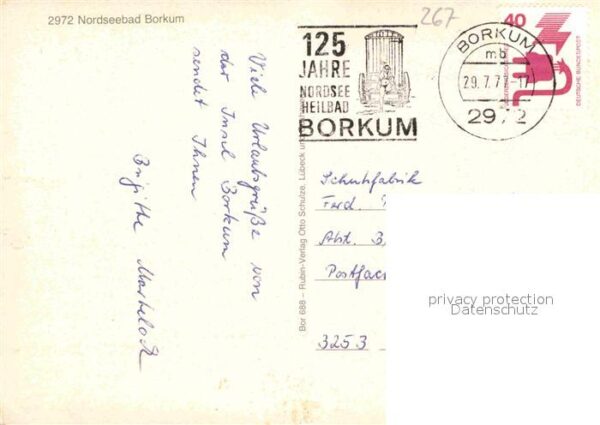 2972 Nordseebad Borkum
267
125
JAHRE
NORDSEE
HEILBAD
BORKUM
BORKUM
mb
29.7.77-17
2972
40
DEUTSCHE BUNDESPOST
Viele Urlaubsgrüße von
der Insel Borkum
sendet Ihnen
Brigitte
Bor 688 – Rubin-Verlag Otto Schulze, Lübeck
Schuhfabrik
Ferd.
Abt. B,
Postfac
3253
privacy protection
Datenschutz